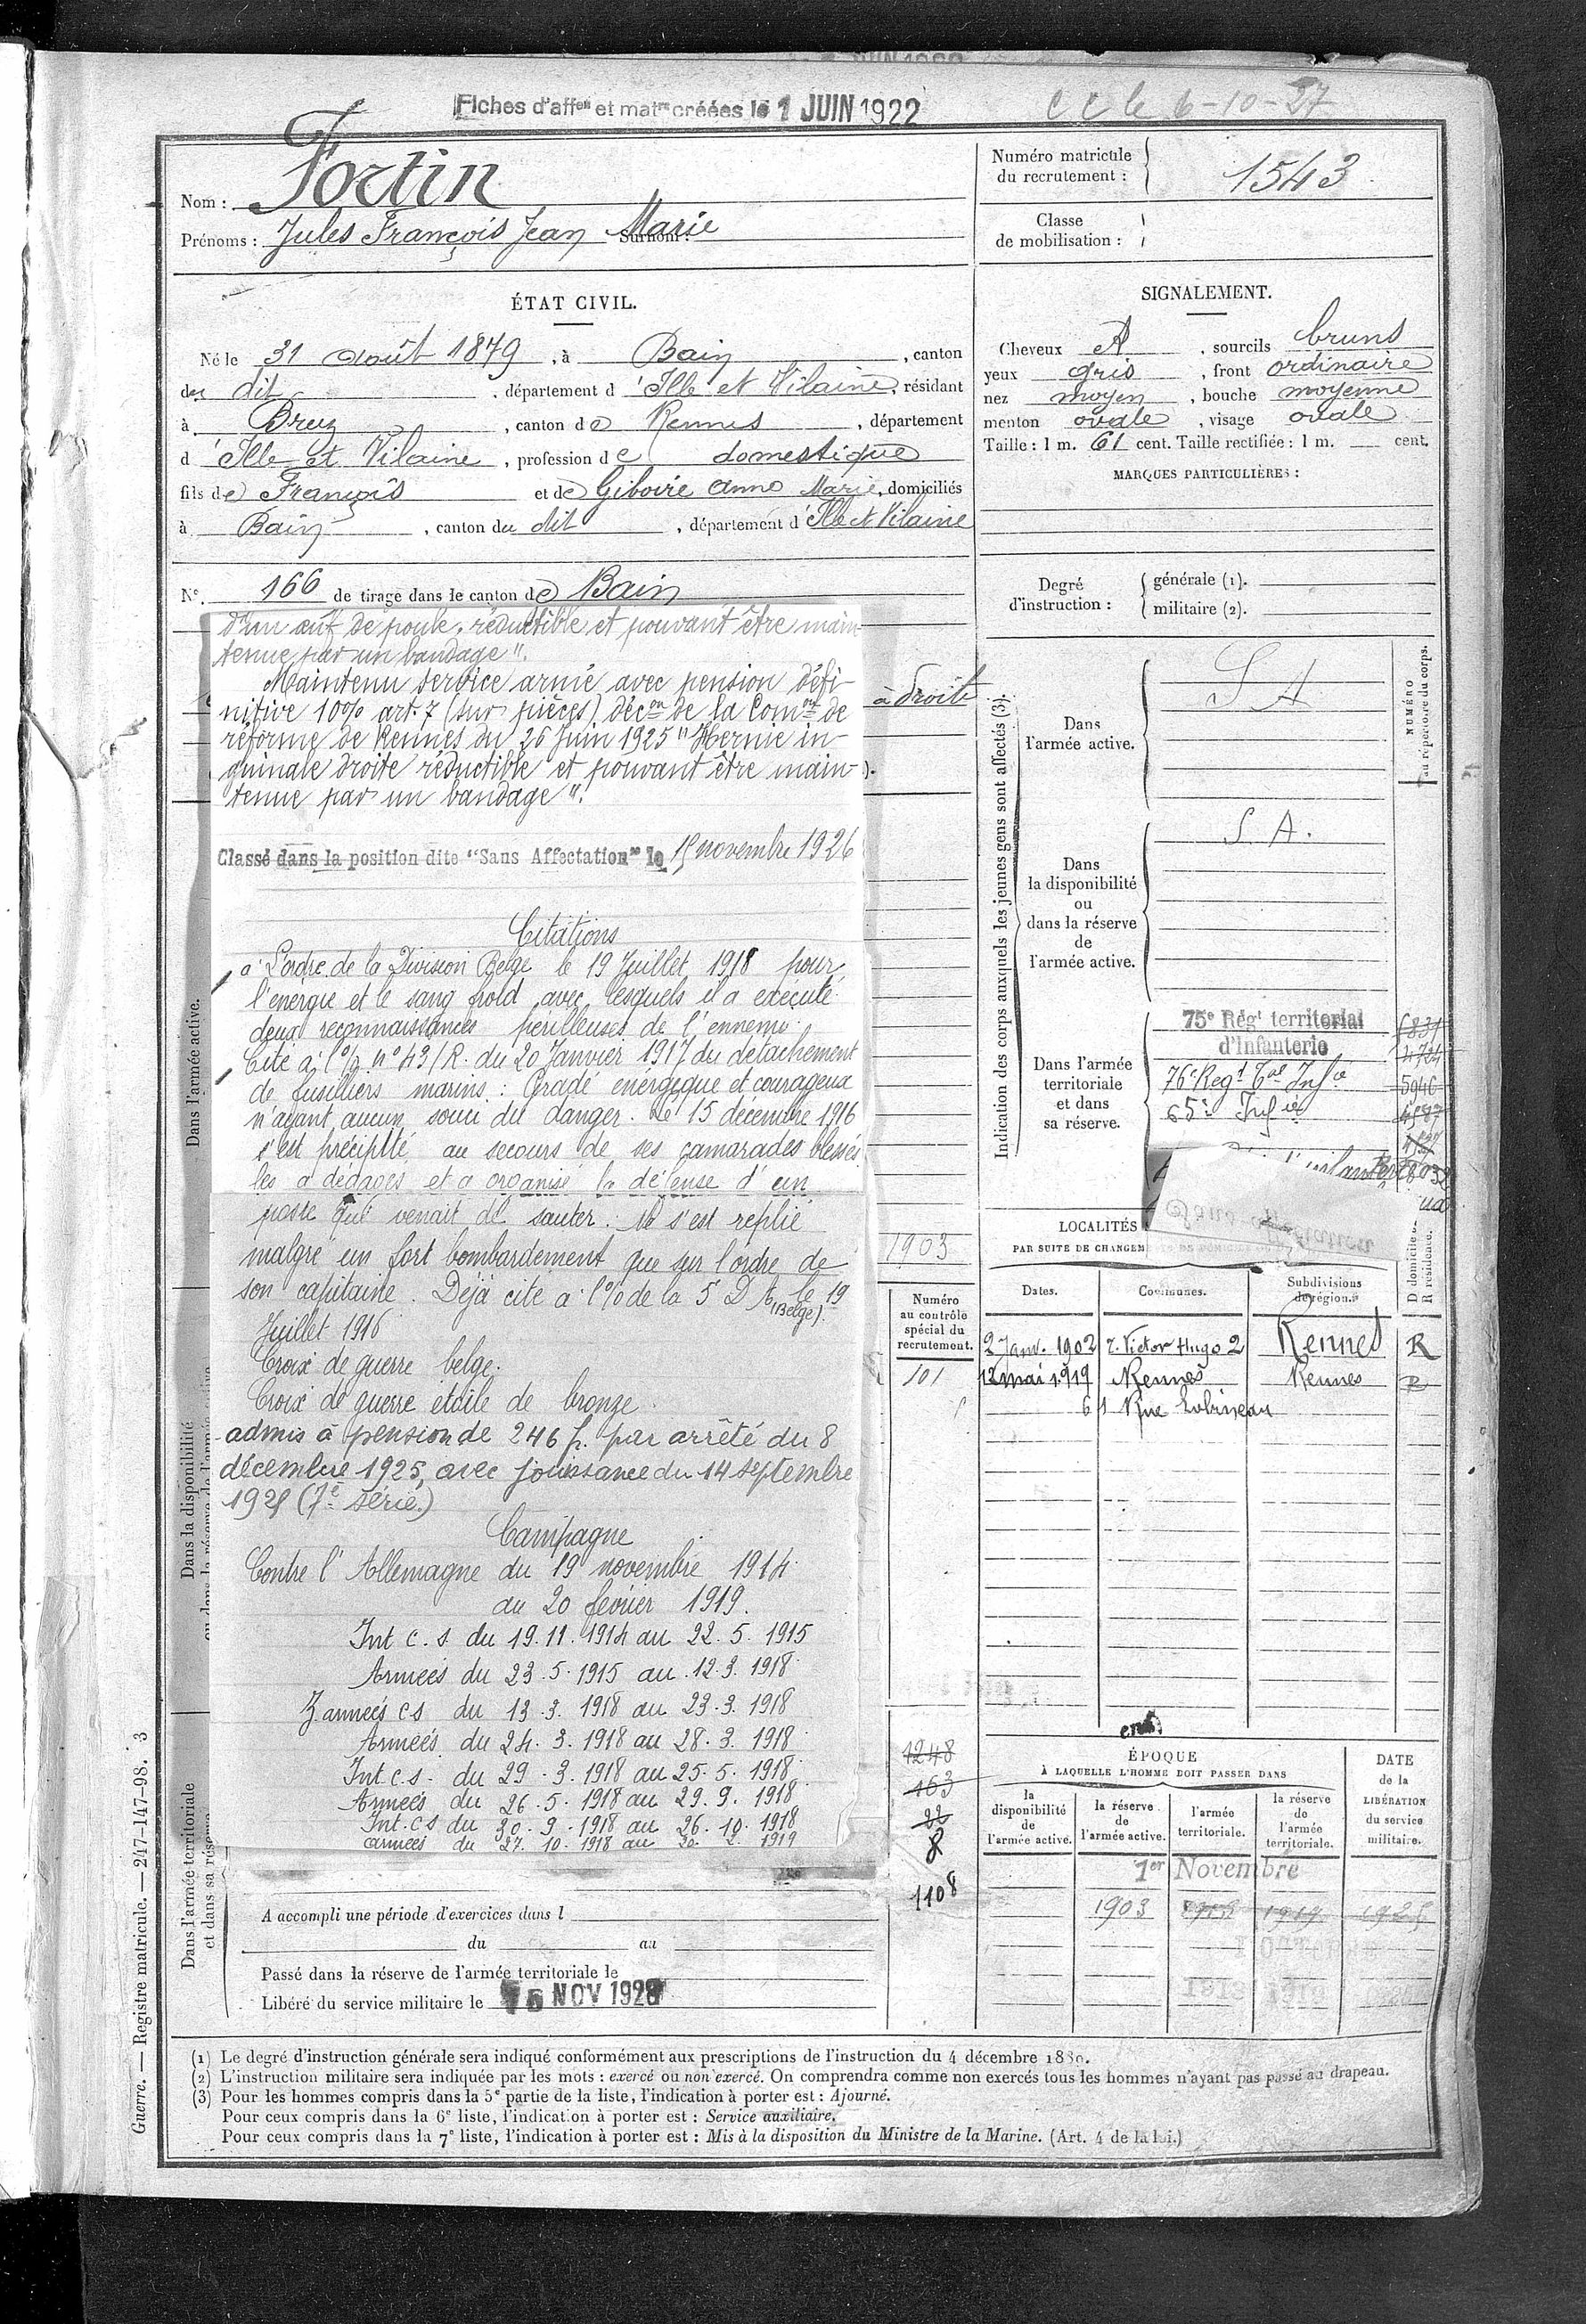 Fiches d'aff<sup>on</sup> et mat<sup>re</sup> créées le 1 JUIN 1922
C C le 6-10-27
Nom : Fortin
Prénoms : Jules François Jean Marie Surnom :
Numéro matricule du recrutement : 1543
Classe de mobilisation :
ÉTAT CIVIL.
Né le 31 août 1879, à Bain, canton
du dit, département d'Ille et Vilaine, résidant
à Bruz, canton de Rennes, département
d'Ille et Vilaine, profession de domestique
fils de François et de Giboire Anne Marie, domiciliés
à Bain, canton du dit, département d'Ille et Vilaine
N° 166 de tirage dans le canton de Bain
SIGNALEMENT.
Cheveux , sourcils bruns
yeux gris, front ordinaire
nez moyen, bouche moyenne
menton ovale, visage ovale
Taille : 1 m. 61 cent. Taille rectifiée : 1 m. cent.
MARQUES PARTICULIÈRES :
Degré d'instruction : générale (1).
militaire (2).
d'un œuf de poule, réductible et pouvant être main-
tenue par un bandage".
Maintenu service armé avec pension défi-
nitive 10% art. 7 (sur pièces) déc<sup>on</sup> de la Com<sup>on</sup> de
réforme de Rennes du 26 Juin 1925 "Hernie in-
guinale droite réductible et pouvant être main-
tenue par un bandage".
à droite
Classé dans la position dite "Sans Affectation" le 15 novembre 1926
Citations
à l'ordre de la Division Belge le 19 Juillet 1918 pour
l'énergie et le sang froid avec lesquels il a exécuté
deux reconnaissances périlleuses de l'ennemi.
Cité à l'o/ n° 43/R. du 20 Janvier 1917 du détachement
de fusilliers marins : Gradé énergique et courageux
n'ayant aucun souci du danger. Le 15 décembre 1916
s'est précipité au secours de ses camarades blessés
les a dégagés et a organisé la défense d'un
poste qui venait de sauter. Ne s'est replié
malgré un fort bombardement que sur l'ordre de
son capitaine. Déjà cité à l'o/ de la 5 D A (Belge). le 19
Juillet 1916
Croix de guerre belge.
Croix de guerre étoile de bronze
admis à pension de 246 f. par arrêté du 8
décembre 1925, avec jouissance du 14 septembre
192 (7e série.)
Campagne
Contre l'Allemagne du 19 novembre 1914
au 20 février 1919.
Int c.s. du 19.11.1914 au 22.5.1915
Armées du 23.5.1915 au 12.3.1918
Z armées cs du 13.3.1918 au 23.3.1918
Armées du 24.3.1918 au 28.3.1918
Int c.s. du 29.3.1918 au 25.5.1918
Armées du 26.5.1918 au 29.9.1918
Int. c.s du 30.9.1918 au 26.10.1918
armées du 27.10.1918 au 20.2.1919
Dans l'armée active.
Dans la disponibilité
ou dans la réserve de l'armée active
Dans l'armée territoriale
et dans sa réserve
1903
Numéro au contrôle spécial du recrutement.
101
1248
163
22
8
1108
A accompli une période d'exercices dans l
du au
Passé dans la réserve de l'armée territoriale le
Libéré du service militaire le NOV 1928
Indication des corps auxquels les jeunes gens sont affectés (3).
Dans l'armée active.
S A
NUMÉRO au répertoire du corps.
Dans la disponibilité ou dans la réserve de l'armée active.
S. A.
Dans l'armée territoriale et dans sa réserve.
75e Rég<sup>t</sup> territorial
d'Infanterie
76e Reg<sup>t</sup> T<sup>al</sup> Inf<sup>ie</sup>
65e Inf<sup>ie</sup>
5946
LOCALITÉS
PAR SUITE DE CHANGEM
Dates.
Communes.
Subdivisions de région.
D domicile. R résidence.
2 Janv. 1902 r. Victor Hugo 2 Rennes R
12 mai 1919 Rennes Rennes R
61 Rue Lobineau
ÉPOQUE
À LAQUELLE L'HOMME DOIT PASSER DANS
la disponibilité de l'armée active.
la réserve de l'armée active.
l'armée territoriale.
la réserve de l'armée territoriale.
DATE de la LIBÉRATION du service militaire.
1er Novembre
1903 1919
Guerre. — Registre matricule. — 247-147-98. 3
(1) Le degré d'instruction générale sera indiqué conformément aux prescriptions de l'instruction du 4 décembre 1889.
(2) L'instruction militaire sera indiquée par les mots : exercé ou non exercé. On comprendra comme non exercés tous les hommes n'ayant pas passé au drapeau.
(3) Pour les hommes compris dans la 5e partie de la liste, l'indication à porter est : Ajourné.
Pour ceux compris dans la 6e liste, l'indication à porter est : Service auxiliaire.
Pour ceux compris dans la 7e liste, l'indication à porter est : Mis à la disposition du Ministre de la Marine. (Art. 4 de la loi.)